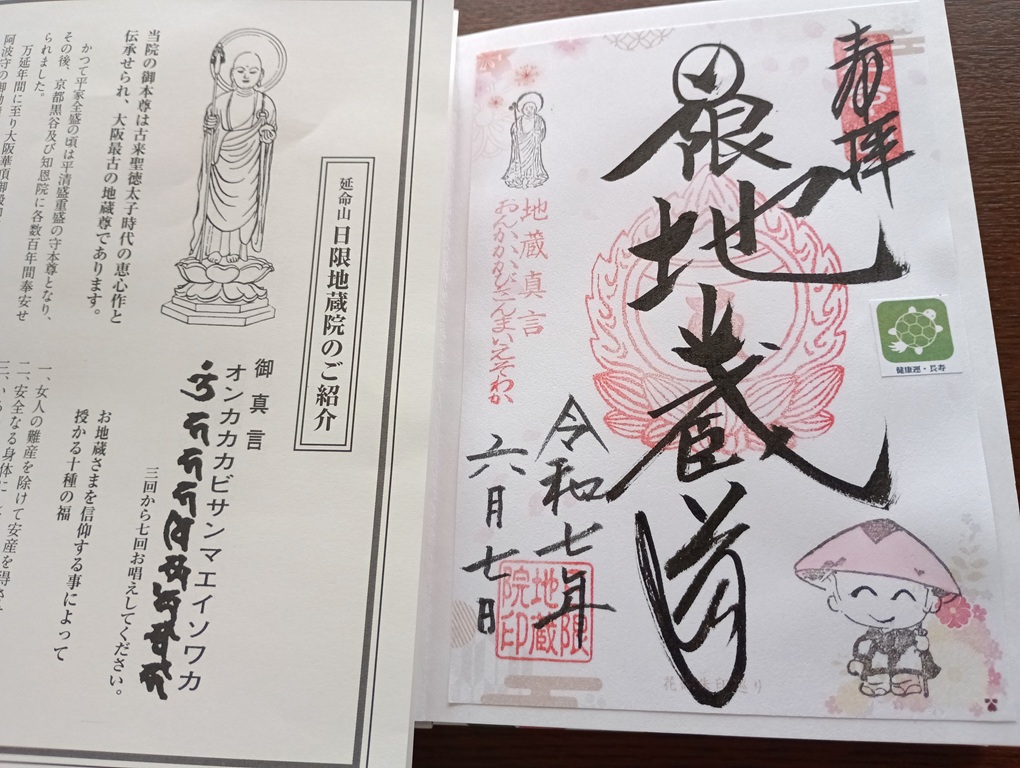 奉拝
日限地蔵尊
地蔵真言
おんかかかびさんまいえそわか
令和七年
六月七日
日限
地蔵
院印
健康運・長寿
延命山 日限地蔵院のご紹介
当院の御本尊は古来聖徳太子時代の恵心作と
伝承せられ、大阪最古の地蔵尊であります。
かつて平家全盛の頃は平清盛重盛の守本尊となり、
その後、京都黒谷及び知恩院に各数百年間奉安せ
られました。
万延年間に至り大阪華頂御殿
御真言
オンカカカビサンマエイソワカ
三回から七回お唱えしてください。
お地蔵さまを信仰する事によって
授かる十種の福
一、女人の難産を除けて安産を得
二、安全なる身体に